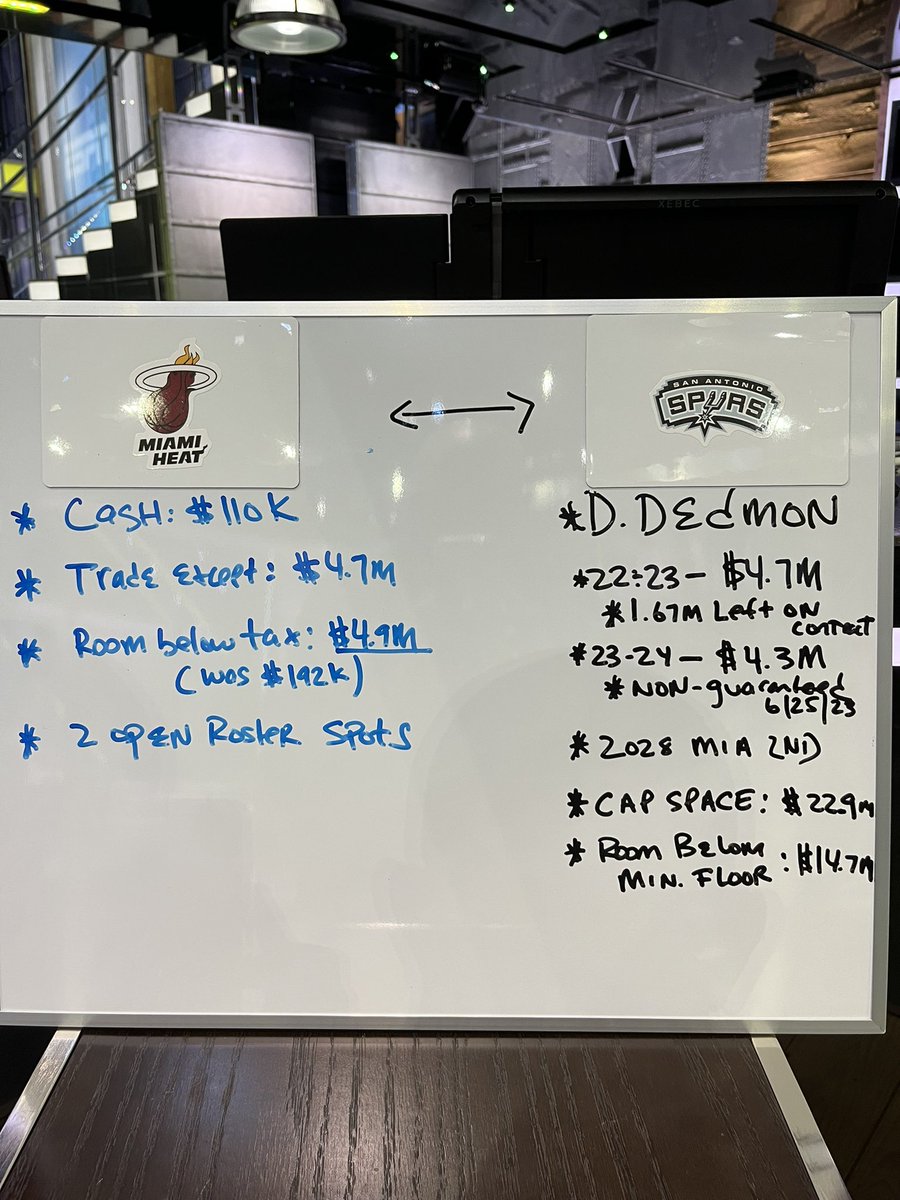 XEBEC
MIAMI
HEAT
SAN ANTONIO
SPURS
* CASH: $110K
* Trade Except: $4.7M
* Room below tax: $4.9M
(was $192K)
* 2 open Roster Spots
* D. DEdMON
* 22-23 - $4.7M
* 1.67M Left on
contract
* 23-24 - $4.3M
* NON-guaranteed
6/25/23
* 2028 MIA 2ND
* CAP SPACE: $22.9M
* Room Below
MIN. FLOOR : $14.7M